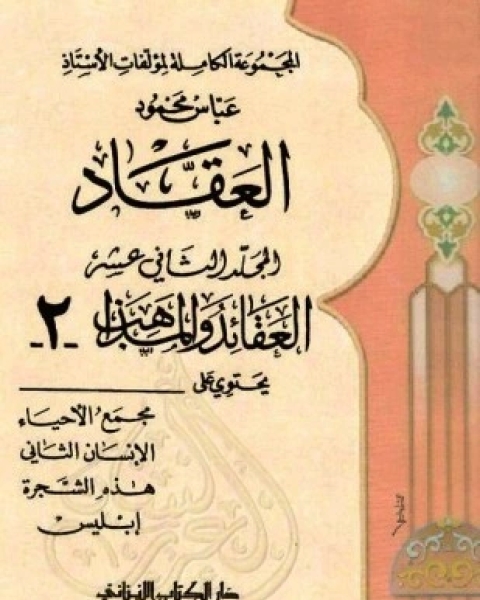 المجموعة الكاملة لمؤلفات الأستاذ
عباس محمود
العقاد
المجلد الثاني عشر
العقائد والمذاهب -٢-
يحتوي على
مجمع الأحياء
الإنسان الثاني
هذه الشجرة
إبليس
دار الكتاب اللبناني